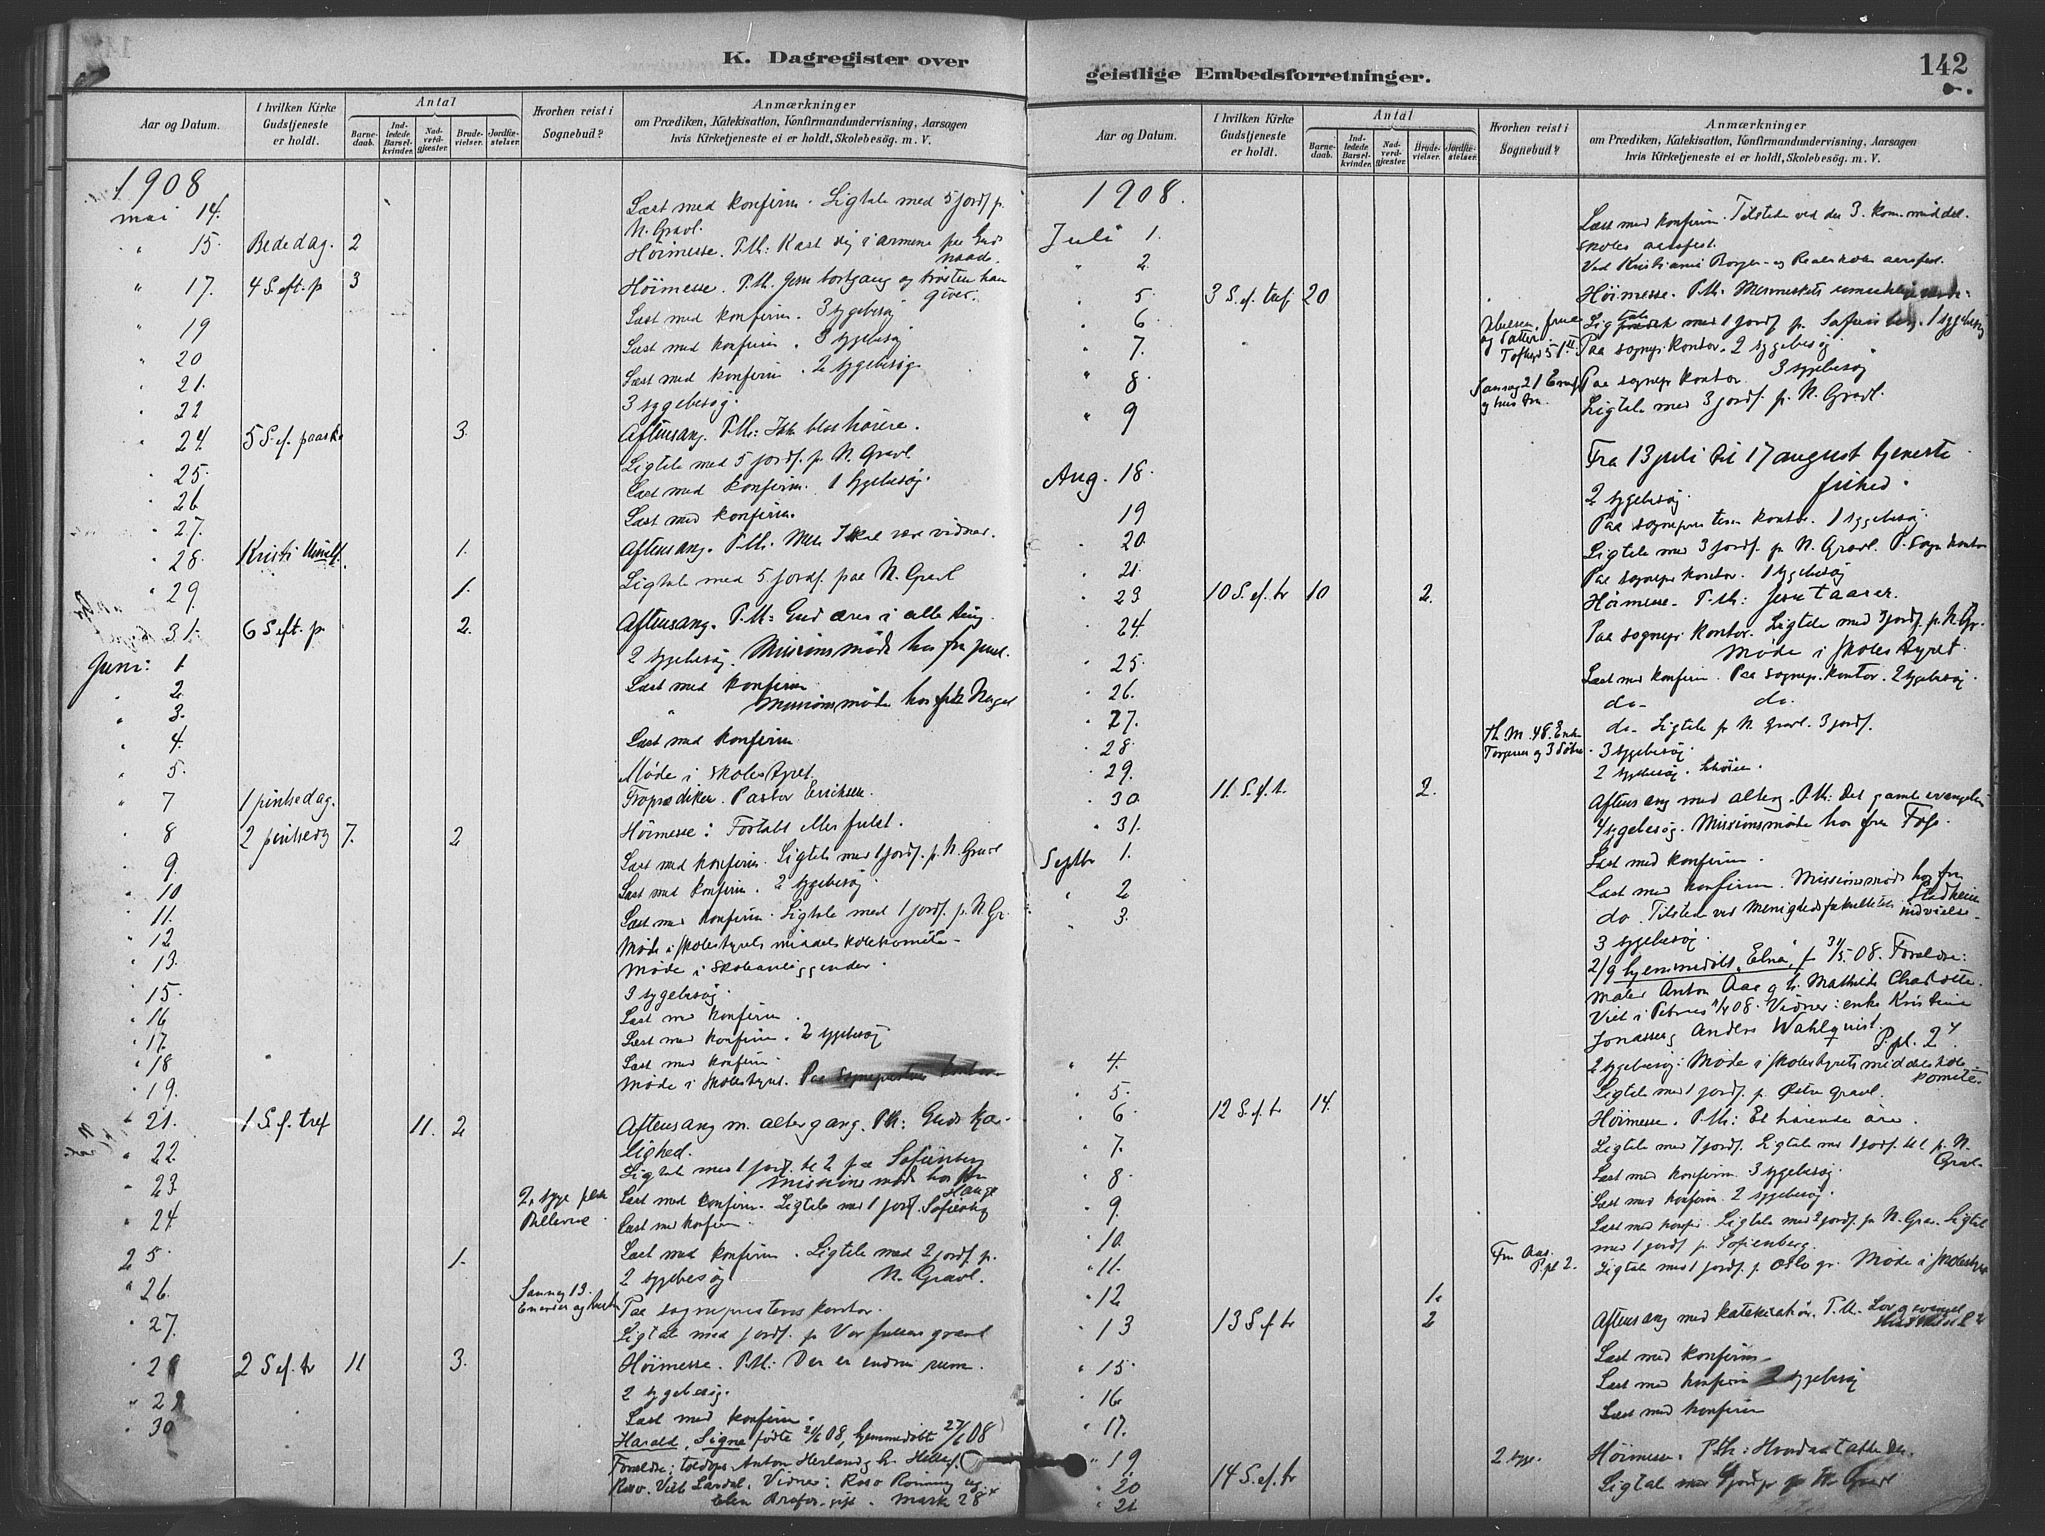 K. Dagregister over
Aar og Datum.
I hvilken Kirke Gudstjeneste er holdt.
Antal
Barne-daab.
Ind-ledede Barsel-kvinder.
Nad-verd-gjæster.
Brude-vielser.
Jordfæ-stelser.
Hvorhen reist i Sognebud?
Anmærkninger
om Prædiken, Katekisation, Konfirmandundervisning, Aarsagen
hvis Kirketjeneste ei er holdt, Skolebesög. m. V.
1908
mai 14. Læst med konfirm. Ligtale med 5 jordf p.
N. Gravl.
" 15. Bededag. 2 Høimesse. P.M: Kast dig i armene paa Guds
naade.
" 17. 4 S. eft. p 3 Høimesse. P.M. Jesu bortgang og trøsten han
giver.
" 19 Læst med konfirm. 3 sygebesøg
" 20 Læst med konfirm. 3 sygebesøg
" 21. Læst med konfirm. 2 sygebesøg.
" 22 3 sygebesøg.
" 24. 5 S. ef. paaske 3. Aftensang. P.M: Ikke blot hørere.
" 25. Ligtale med 5 jordf. p. N. Gravl
" 26 Læst med konfirm. 1 sygebesøg.
" 27. Læst med konfirm.
" 28. Kristi Himlf. 1. Aftensang. P.M. Men I skal være vidner.
" 29. 1. Ligtale med 5 jordf. paa N. Gravl
" 31. 6 S eft. p. 2. Aftensang. P.M: Gud æres i alle ting.
Juni: 1. 2 sygebesøg. Missionsmøde hos fru
" 2. Læst med konfirm
" 3. " Missionsmøde hos frk Nagel
" 4. Læst med konfirm
" 5. Møde i skolestyret.
" 7 1 pintsedag. Froprædiken. Pastor Eriksen.
" 8 2 pintsedag 7. 2 Høimesse: Fortabt eller frelst.
" 9. Læst med konfirm. Ligtale med 1 jordf. p. N. Gravl
" 10 Læst med konfirm. 2 sygebesøg.
" 11. Læst med konfirm. Ligtale med 1 jordf. p. N. Gr.
" 12 Møde i skolestyrets middelskolekomite.
" 13. Møde i skoleanliggender.
" 15. 3 sygebesøg.
" 16 Læst med konfirm.
" 17. Læst med konfirm. 2 sygebesøg
" 18 Læst med konfirm.
" 19. Møde i skolestyret. Paa sognepresten kontor.
" 21. 1 S. f. tref 11. 2 Aftensang m. altergang. P.M: Guds kjær-
lighed.
" 22. Ligtale med 1 jord. til 2 paa Sofienberg
" 23. Missionsmøde hos fru Hauge
2 syge Læst med konfirm. Ligtale med 1 jordf. Sofienbg
" 24. Læst med konfirm.
25. 1. Læst med konfirm. Ligtale med 2 jordf p.
N. Gravl.
" 26. 2 sygebesøg
" 27. Paa sogneprestens kontor.
Ligtale med jordf. p. Vor frelsers gravl
" 28 2 S ef. tr 11 3. Høimesse. P.M: Der er endnu rum.
" 29 2 sygebesøg.
" 30 Læst med konfirm.
Harald, Signe fødte 24/6 08, hjemmedøbte 27/6 08
Forældre: toldopp. Anton Herland og h. Helle f.
Roso. Viet Lardal. Vidner: Roso Rønning og
Elen gift. Mark 28
geistlige Embedsforretninger.
142
Aar og Datum.
I hvilken Kirke Gudstjeneste er holdt.
Antal
Barne-daab.
Ind-ledede Barsel-kvinder.
Nad-verd-gjæster.
Brude-vielser.
Jordfæ-stelser.
Hvorhen reist i Sognebud?
Anmærkninger
om Prædiken, Katekisation, Konfirmandundervisning, Aarsagen
hvis Kirketjeneste ei er holdt, Skolebesög. m. V.
1908.
Juli 1. Læst med konfirm. Tilstede ved de 3. kom. middel-
skoles aarsfest.
" 2. Ved Kristiania Borger- og Realskoles aarsfest.
" 5. 3 S. ef. tref 20 Høimesse. P.M: Menneskets
" 6. Ligtale med 1 jordf p. Sofienberg. 1 sygebesøg
" 7. Toftesg 51 II. Paa sognepr. kontor. 2 sygebesøg
" 8. Paa sognepr. kontor 3 sygebesøg
" 9 Ligtale med 3 jordf. p. N. Gravl.
Fra 13 juli til 17 august tjeneste
frihed.
Aug. 18. 2 sygebesøg.
19 Paa sogneprestens kontor. 1 sygebesøg
" 20. Ligtale med 3 jordf. p. N. Gravl. P. sogn kontor
" 21. Paa sognepr kontor. 1 sygebesøg
" 23 10 S. ef. tr 10 2. Høimesse. P.M: Jesu taarer.
" 24. Paa sognepr. kontor. Ligtale med 3 jordf. p. N. Gr.
Møde i skolestyret.
" 25. Læst med konfirm. Paa sognepr. kontor. 2 sygebesøg.
" 26. do. do.
" 27. do. Ligtale p. N. Gravl. 3 jordf.
" 28. Th. M. 48. 3 sygebesøg.
" 29. 2 sygebesøg.
" 30. 11. S. ef. t. 2. Aftensang med alterg. P.M: Det gamle evangelium
" 31. 4 sygebesøg. Missionsmøde hos fru Foss.
Septbr 1. Læst med konfirm.
" 2 Læst med konfirm. Missionsmøde hos fru
" 3. do. Tilstede ved Menighedsfakultetets indvielse.
3 sygebesøg.
2/9 hjemmedøbt, Elna, f 31/5 08. Forældre:
maler Anton Aas og h. Mathilde Charlotte.
Viet i Petrus 11/4 08. Vidner: enke Kristine
Jonassen, Anders Wahlquist. P. pl. 2 4
" 4. 2 sygebesøg. Møde i skolestyrets middelskole-
komite.
" 5. Ligtale med 1 jordf p. Østre gravl.
" 6 12 S ef. tr 14. Høimesse. P.M: Et hørende øre.
" 7. Ligtale med 7 jordf. Ligtale med 1 jordf. til p. N.
Gravl.
" 8. Læst med konfirm. 3 sygebesøg.
" 9. Læst med konfirm. 2 sygebesøg.
" 10. Læst med konfir. Ligtale med 2 jordf. p. N. Grav. Ligtale
med 1 jordf p. Sofienberg.
" 11. Fru Aas. P. pl 2. Ligtale med 1 jordf. p. Oslo gr. Møde i skolestyret
" 12 1.
" 13 13 S ef tr 2 Aftensang med katekisation. P.M. Lov og evangel
" 15. Læst med konfirm.
" 16. Læst med konfirm 2 sygebesøg
" 17. Læst med konfirm
" 19. 2 syge.
" 20 14 S. ef. tr Høimesse. P.M:
" 21 Ligtale med jordf p N Gravl